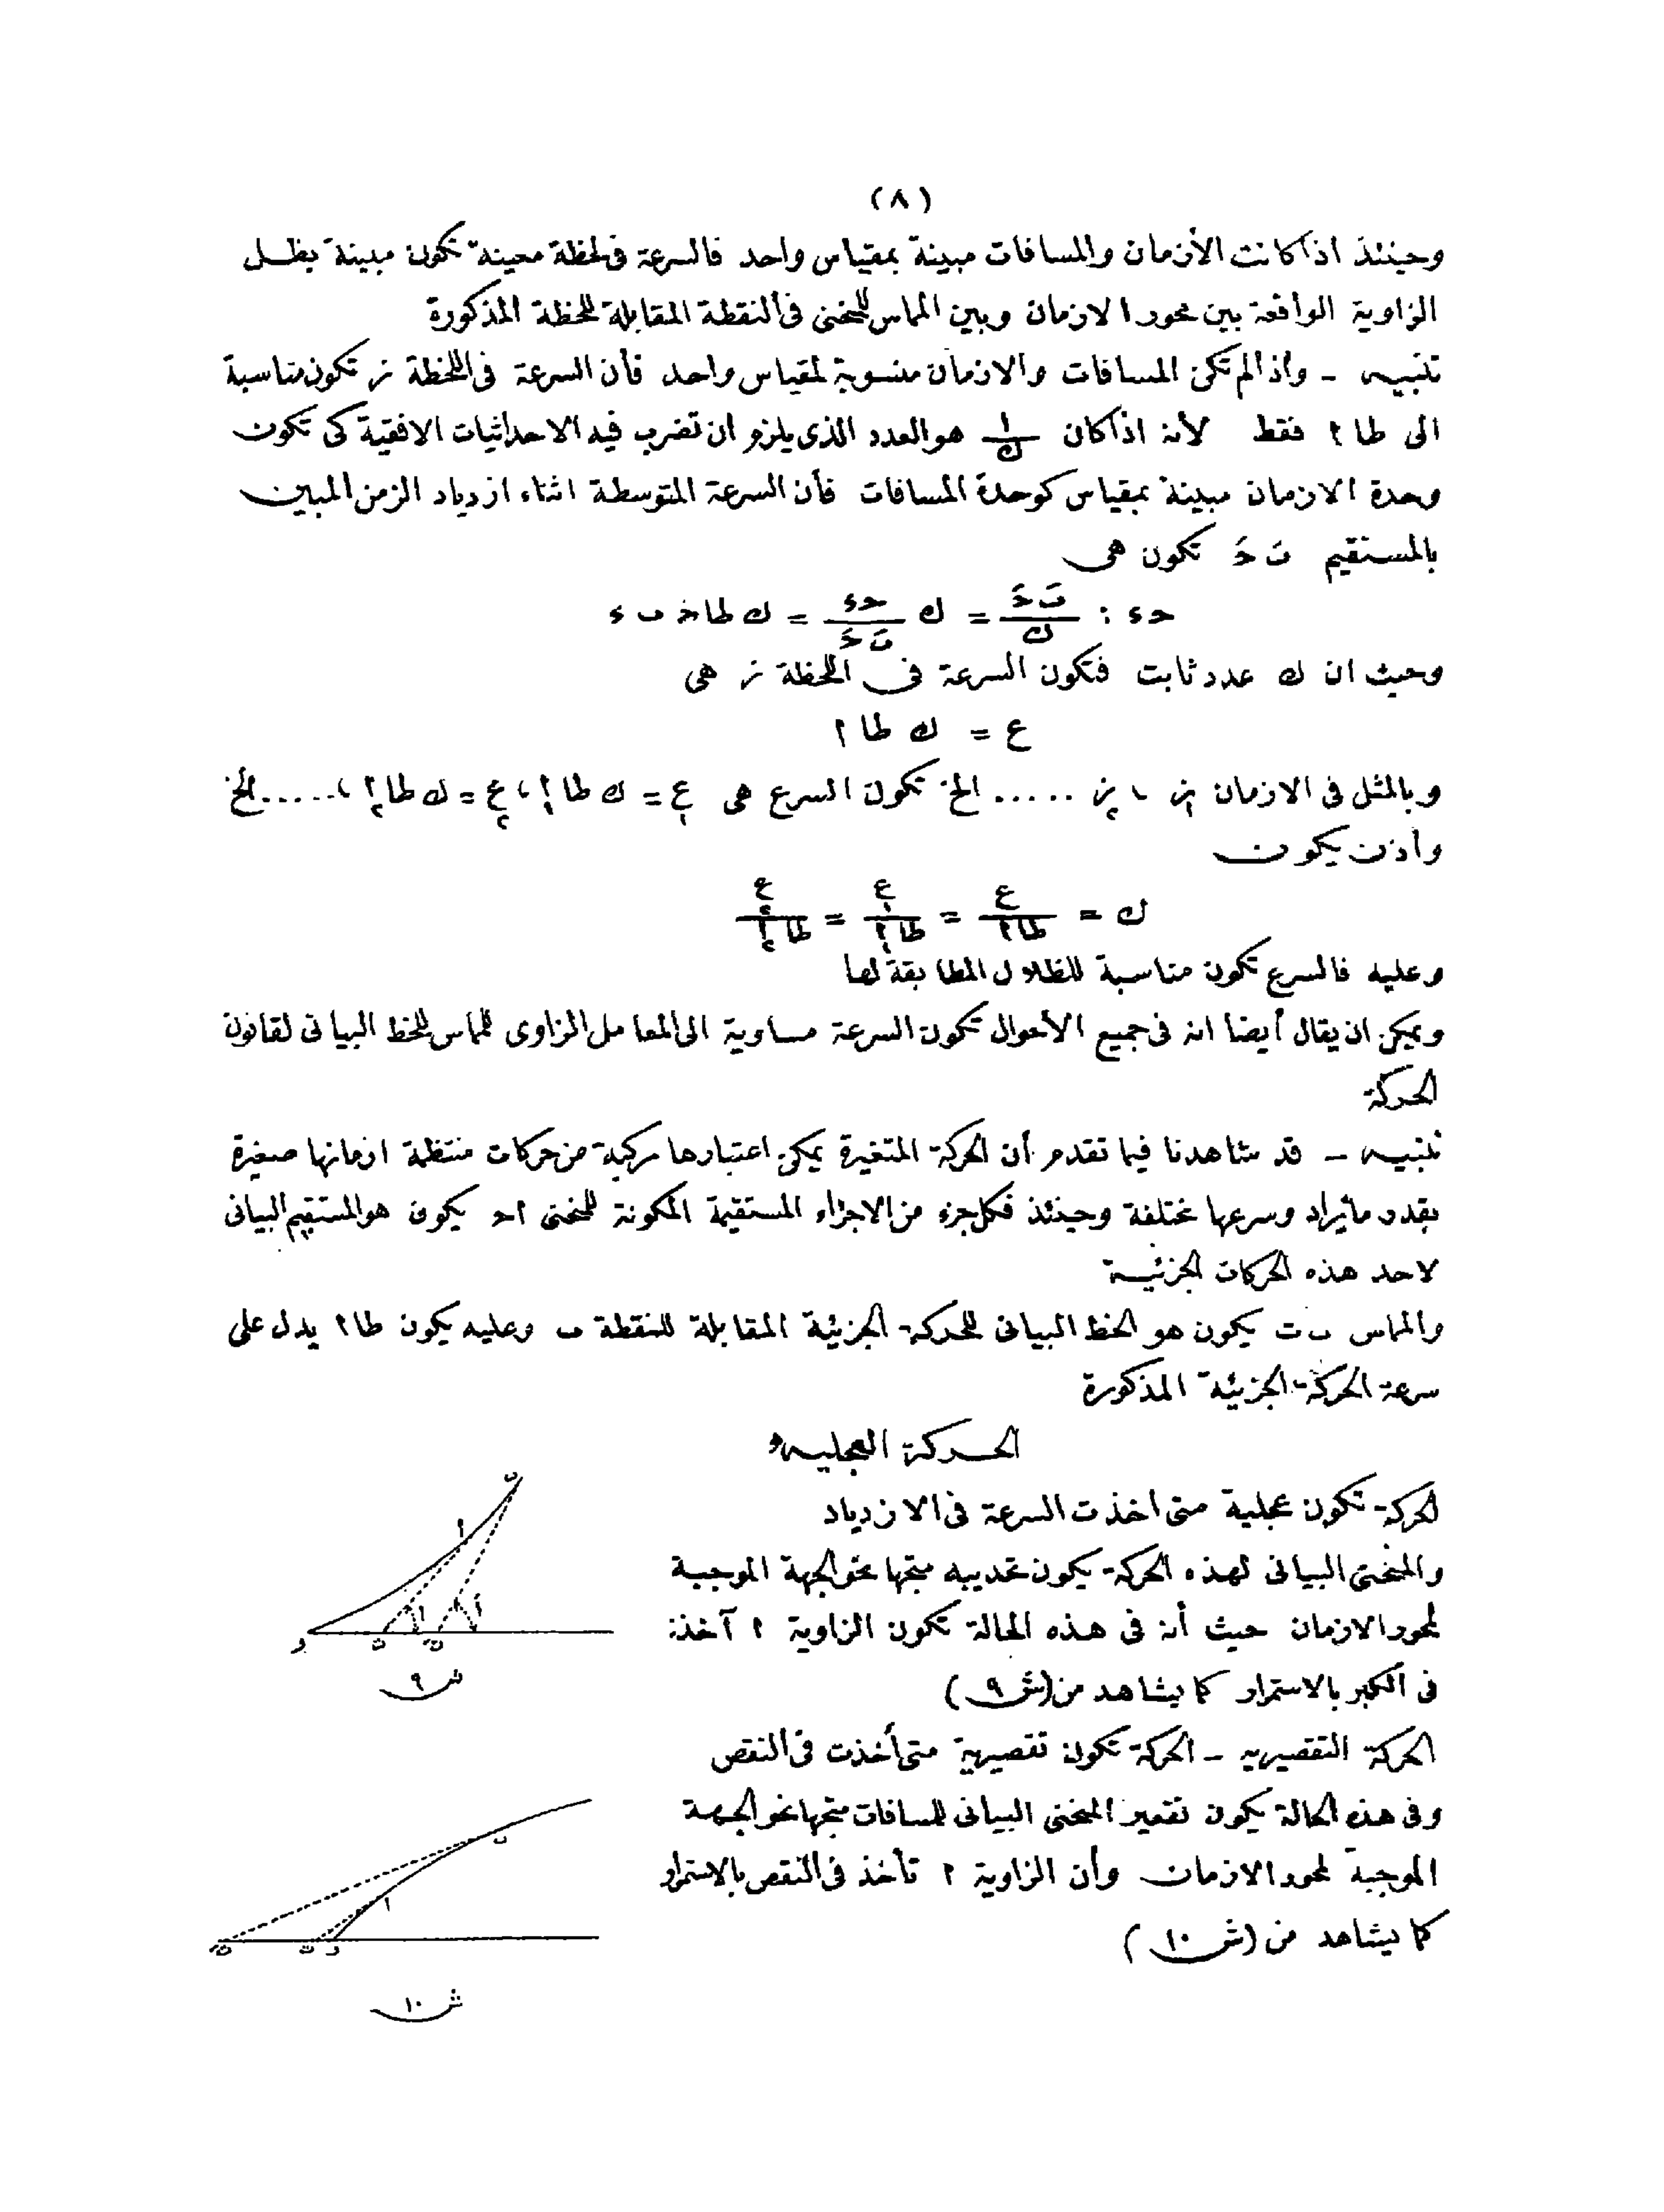 (٨)
وحينئذ اذا كانت الأزمان والمسافات مبينة بمقياس واحد فالسرعة فى لحظة معينة تكون مبينة بظل
الزاوية الواقعة بين محور الازمان وبين المماس للمنحنى فى النقطة المقابلة للحظة المذكورة
تنبيه - وأذا لم تكن المسافات والازمان منسوبة لمقياس واحد فأن السرعة فى اللحظة ز تكون مناسبة
الى طا ا فقط لأنه اذا كان ١/ك هو العدد الذى يلزم ان تضرب فيه الاحداثيات الافقية كى تكون
وحدة الازمان مبينة بمقياس كوحدة المسافات فأن السرعة المتوسطة اثناء ازدياد الزمن المبين
بالمستقيم بَ حَ تكون هى
حء : بَ حَ/ك = ك حء/بَ حَ = ك طا حـ ب ء
وحيث ان ك عدد ثابت فتكون السرعة فى اللحظة ز هى
ع = ك طا ا
وبالمثل فى الازمان ز١ ، ز٢ ..... الخ تكون السرع هى ع١ = ك طا ا١ ، ع٢ = ك طا ا٢ ، ..... الخ
وأذن يكون
ك = ع/طا ا = ع١/طا ا١ = ع٢/طا ا٢
وعليه فالسرع تكون مناسبة للظلال المطابقة لها
ويمكن ان يقال أيضا انه فى جميع الأحوال تكون السرعة مساوية الى المعامل الزاوى للماس للخط البيانى لقانون
الحركة
تنبيه - قد شاهدنا فيما تقدم أن الحركة المتغيرة يمكن اعتبارها مركبة من حركات منتظمة ازمانها صغيرة
بقدر ما يراد وسرعها مختلفة وحينئذ فكل جزء من الاجزاء المستقيمة المكونة للمنحنى احـ يكون هو المستقيم البيانى
لاحد هذه الحركات الجزئية
والماس ب ت يكون هو الخط البيانى للحركة الجزئية المقابلة للنقطة ب وعليه يكون طا ا يدل على
سرعة الحركة الجزئية المذكورة
الحركة العجلية
الحركة تكون عجلية متى اخذت السرعة فى الازدياد
والمنحنى البيانى لهذه الحركة يكون تحديبه متجها نحو الجهة الموجبة
لمحور الازمان حيث أنه فى هذه الحالة تكون الزاوية ا آخذة
فى الكبر بالاستمرار كما يشاهد من (ش ٩)
ش ٩
الحركة التقصيريه - الحركة تكون تقصيرية متى أخذت فى النقص
وفى هذه الحالة يكون تقعير المنحنى البيانى للمسافات متجها نحو الجهة
الموجبة لمحور الازمان وأن الزاوية ا تأخذ فى النقص بالاستمرار
كما يشاهد من (ش ١٠)
ش ١٠